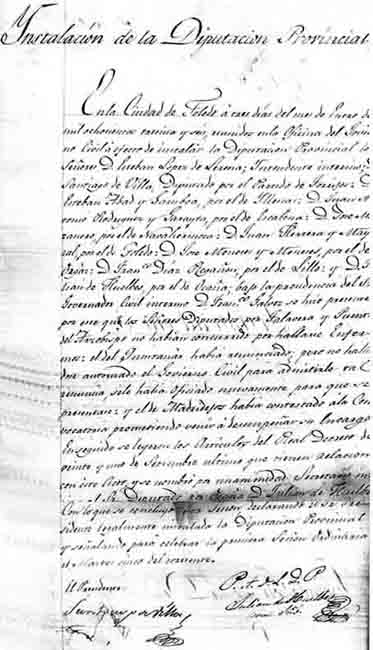 Instalación de la Diputacion Provincial
En la Ciudad de Toledo à tres dias del mes de Enero de
mil ochocientos treinta y seis, reunidos en la Oficina del Govier
no Civil à efecto de instalar la Diputacion Provincial los
Señores D. Esteban Lopez de Intendente interino; D.
Santiago de Villa, Diputado por el Partido de D.
Esteban Abad y por el de Illescas: D. Juan An
tonio Rodriguez y por el de Escalona: D. Jose
por el de Navahermosa: D. Juan Herrera y May
por el de Toledo: D. Jose Moneres y Moneres, por el de
Orgáz: D. Franco. Diáz por el de Lillo: y D. Ju
lian de Huelbes por el de Ocaña, bajo la presidencia del Sr.
Governador Civil interino D. Franco. se hizo presente
por este que los Señores Diputados por Talavera y Puente
del Arzobispo no habian concurrido por hallarse Enfer
mos: el del Quintanar habia renunciado, pero no hallan
dose autorizado el Govierno Civil para admitirle la Re
nuncia, solo habia oficiado nuevamente para que se
presentare: y el de Madridejos habia contestado à la Con
vocatoria prometiendo venir à desempeñar su Encargo
Enseguida se leyeron los Articulos del Real Decreto de
veinte y uno de Setiembre ultimo que tienen relacion
con este Acto, y se nombró por unanimidad Secretario
al Sr. Diputado por Ocaña D. Julian de Huelbes
Con lo que se concluyó esta Sesion declarando el Sr. Pre
sidente legalmente instalada la Diputacion Provincial
y señalando para celebrar la primera Sesion Ordinaria
el Martes cinco del corriente.
El Presidente
P. A. d. L. D. P.
Julian de Huelbes